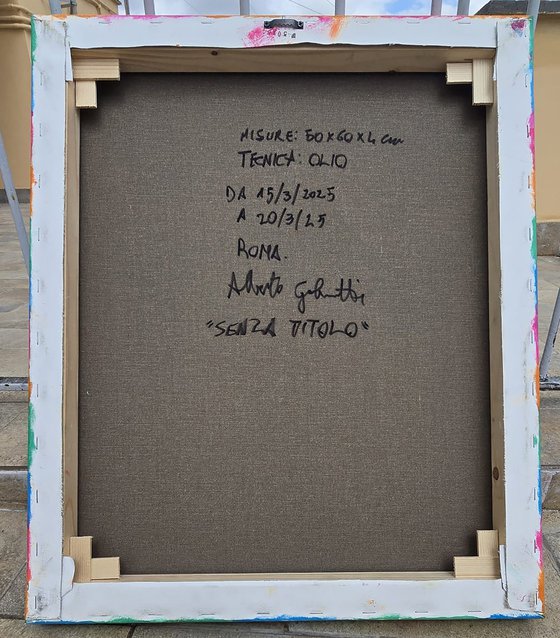 MISURE: 50x60x4 cm
TECNICA: OLIO
DA 15/3/2025
A 20/3/25
ROMA.
Alberto
"SENZA TITOLO"